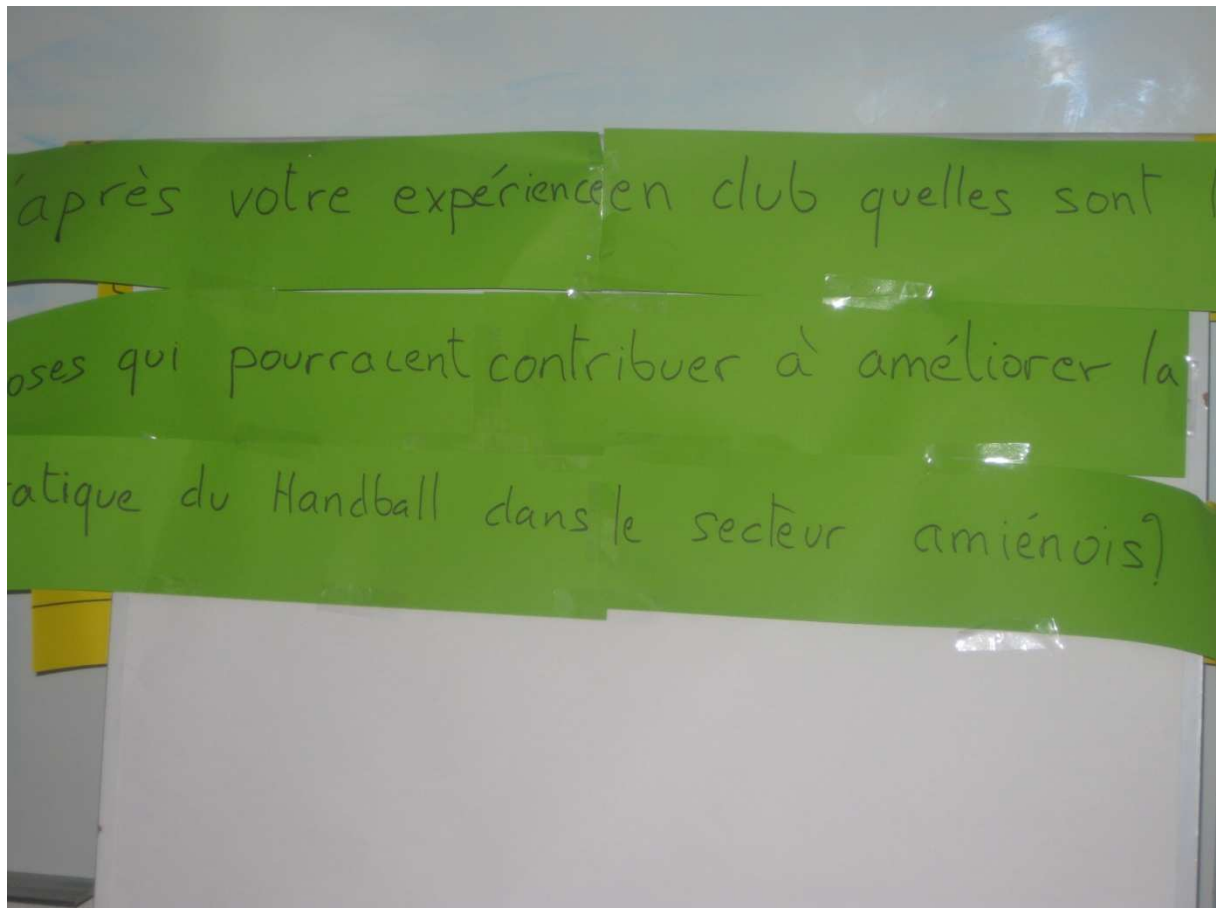 'après votre expérience en club quelles sont l
oses qui pourraient contribuer à améliorer la
atique du Handball dans le secteur amiénois?